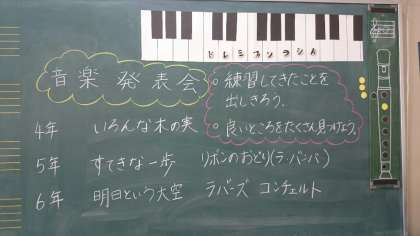 ドレミファソラシド
音楽発表会
○練習してきたことを
出しきろう。
○良いところをたくさん見つけよう。
4年 いろんな木の実
5年 すてきな一歩 リボンのおどり(ラ・バンバ)
6年 明日という大空 ラバーズ コンチェルト